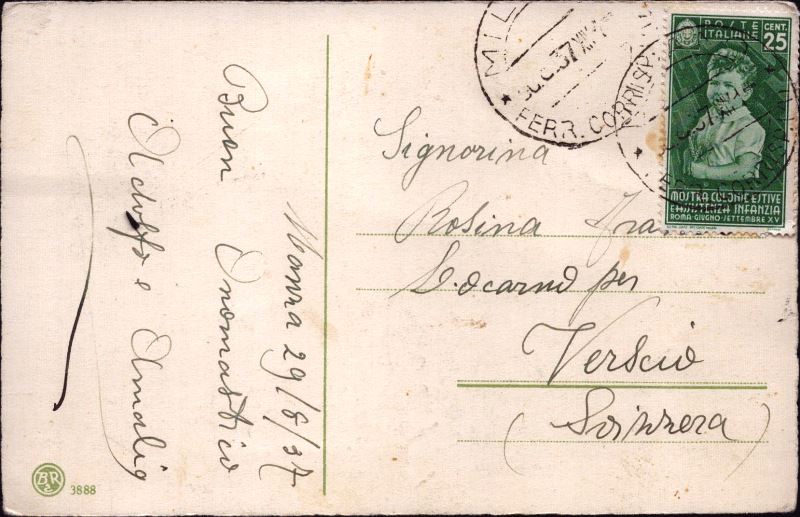 Monza 29/8/37
Buon
Onomastico
Adolfo e Amalia
Signorina
Rosina
Locarno per
Verscio
(Svizzera)
POSTE
ITALIANE
CENT.
25
MOSTRA COLONIE ESTIVE
E ASSISTENZA INFANZIA
ROMA·GIUGNO·SETTEMBRE XV
MIL
37 XV
FERR. CORRISP.
37 XV
FERR. CORRISP.
BR
3888